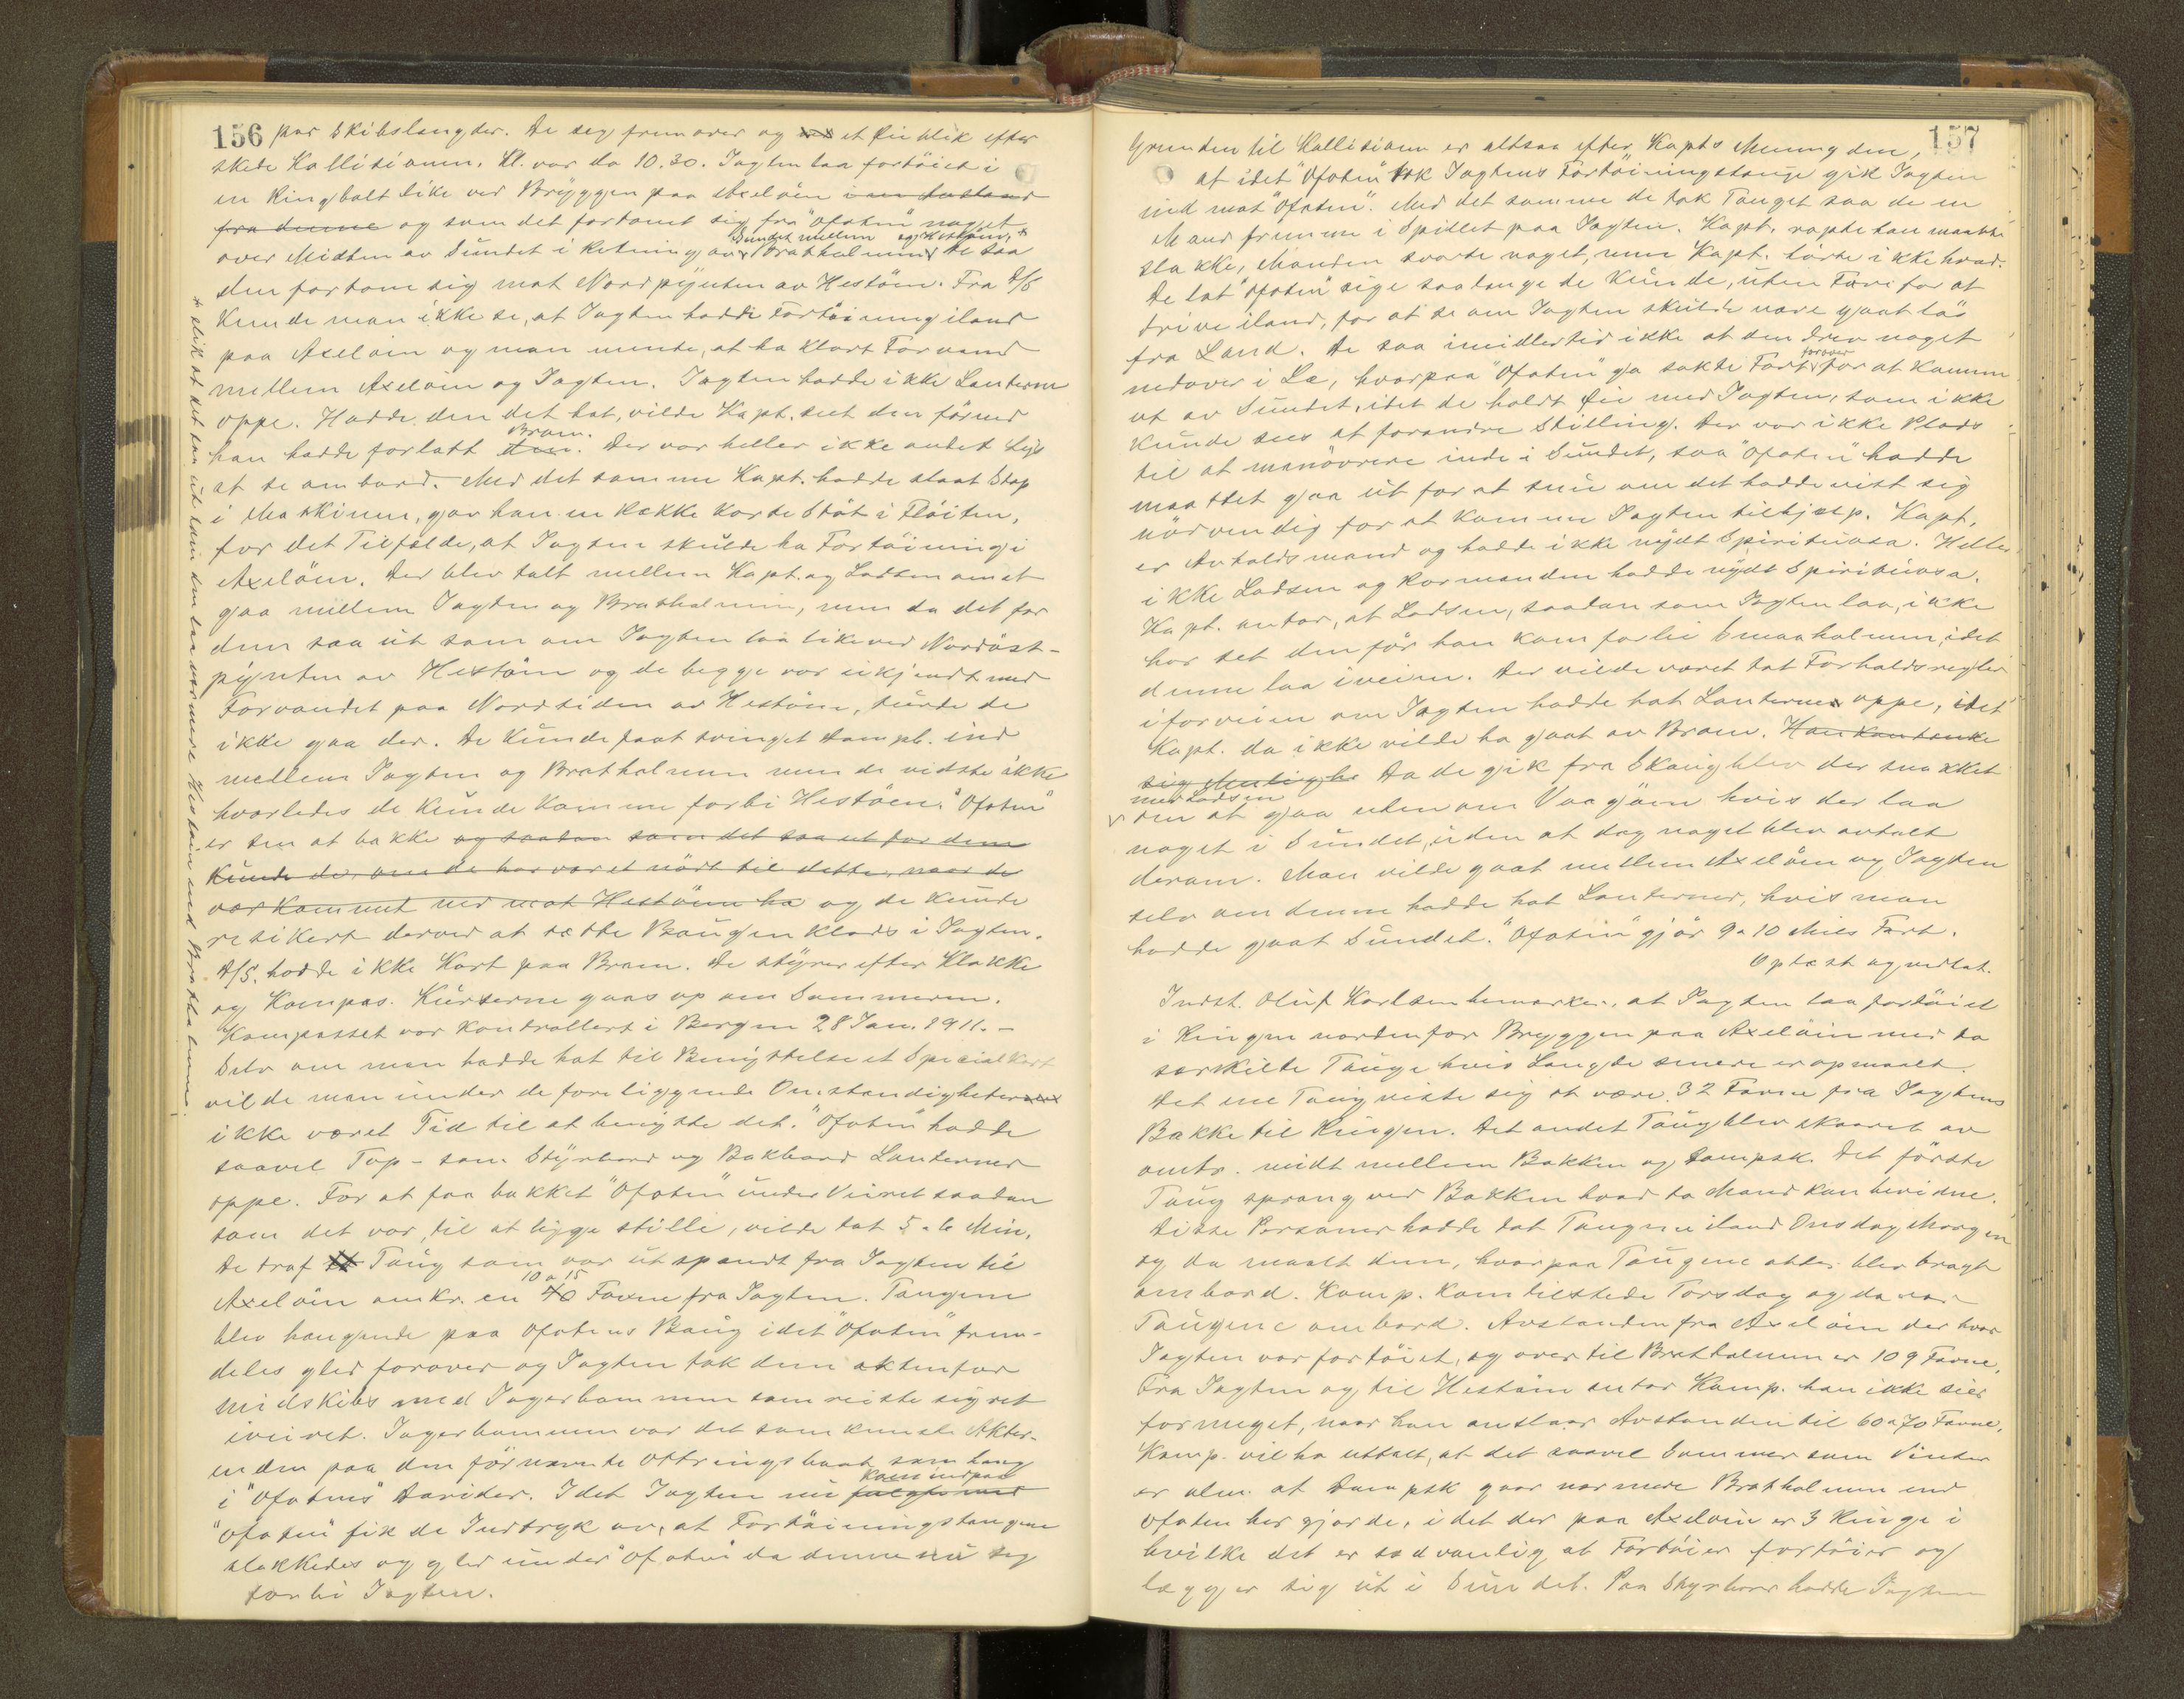 156 par Skibslængder. De seg fremover og et Øieblik efter
skede Kollisionen. Kl. var da 10.30. Jagten laa fortøiet i
en Ringbolt like ved Bryggen paa Axeløen i en Avstand
fra denne og som det fortonet sig fra "Ofoten" noget
over Midten av Sundet i Retning av Sundet mellem Bratholmen og Hestøen. * De saa
den fortone sig mot Nordpynten av Hestøen. Fra D/S
kunde man ikke se, at Jagten hadde Fortøining iland
paa Axeløen og man mente, at ha klart Farvand
mellem Axeløen og Jagten. Jagten hadde ikke Lanterne
oppe. Hadde den det hat, vilde Kapt. seet den førend
han hadde forlatt Broen. Der var heller ikke andet Lys
at se ombord. Med det samme Kapt. hadde slaat Stop
i Maskinen, gav han en Række korte Støt i Fløiten,
for det Tilfælde, at Jagten skulde ha Fortøining i
Axeløen. Der blev talt mellem Kapt. og Lodsen om at
gaa mellem Jagten og Bratholmen, men da det for
dem saa ut som om Jagten laa like ved Nordøst-
pynten av Hestøen og de begge var ukjendt med
Farvandet paa Nordsiden av Hestøen, turde de
ikke gaa der. De kunde faat svinget Dampsk. ind
mellem Jagten og Bratholmen men de vidste ikke
hvorledes de kunde komme forbi Hestøen. "Ofoten"
er sen at bakke og saadan som det saa ut for dem
kunde de, om de har været nødt til dette, naar de
var kommet ned mot Hestøen ha og de kunde
risikert derved at sætte Baugen klods i Jagten.
D/S. hadde ikke Kart paa Broen. De styrer efter Klokke
og Kompas. Kurserne gaaes op om Sommeren.
Kompasset var kontrollert i Bergen 28 Jan. 1911. -
Selv om man hadde hat til Benyttelse et Specialkart
vilde man under de foreliggende Omstændigheter
ikke været Tid til at benytte det. "Ofoten" hadde
saavel Top- som Styrbord og Bakbord Lanterner
oppe. For at faa bakket "Ofoten" under Veiret saadan
som det var, til at ligge stille, vilde tat 5 a 6 Min.
De traf Taug som var utspændt fra Jagten til
Axeløen omkr. en 10 a 15 Favne fra Jagten. Taugene
blev hængende paa Ofotens Baug idet "Ofoten" frem-
deles gled forover og Jagten tok dem aktenfor
midskibs med Jagerbommen som reiste sig ret
iveiret. Jagerbommen var det som knuste Akter-
enden paa den førnævnte Ottringsbaat som hang
i "Ofotens" Davider. Idet Jagten nu kom indpaa
"Ofoten" fik de Indtryk av, at Fortøiningstaugene
slakkedes og gled under "Ofoten" da denne nu seg
forbi Jagten.
* slik at det saa ut som den laa nærmere Hestøen end Bratholmen.
157
Grunden til Kollisionen er altsaa efter Kapt's Mening den,
at idet "Ofoten" tok Jagtens Fortøiningstauge gik Jagten
ind mot "Ofoten". Med det samme de tok Tauget saa de en
Mand fremme i Spillet paa Jagten. Kapt. ropte han maatte
slakke, Manden svarte noget, men Kapt. hørte ikke hvad.
De lot "Ofoten" sige saalænge de kunde, uten Fare for at
drive iland, for at se om Jagten skulde være gaat løs
fra Land. De saa imidlertid ikke at den drev noget
nedover i Læ, hvorpaa "Ofoten" ga sakte Fart forover for at komme
ut av Sundet, idet de holdt Øie med Jagten, som ikke
kunde sees at forandre Stilling. Der var ikke Plads
til at manøvrere inde i Sundet, saa "Ofoten" hadde
maattet gaa ut for at snu om det hadde vist sig
nødvendig for at komme Jagten tilhjælp. Kapt.
er Avholdsmand og hadde ikke nydt Spirituosa. Heller
ikke Lodsen og Rormanden hadde nydt Spirituosa.
Kapt. antar, at Lodsen, saadan som Jagten laa, ikke
har set den før han kom forbi Smaaholmene, idet
denne laa iveien. Der vilde været tat Forholdsregler
iforveien om Jagten hadde hat Lanterne oppe, idet
Kapt. da ikke vilde ha gaat av Broen. Han kan tænke
sig Da de gik fra Skaug blev der snakket
med Lodsen om at gaa uten om Vaagøen hvis der laa
noget i Sundet, uden at dog noget blev avtalt
derom. Man vilde gaat mellem Axeløen og Jagten
selv om denne hadde hat Lanterner, hvis man
hadde gaat Sundet. "Ofoten" gjør 9 a 10 Miles Fart.
Oplæst og vedtat.
Indst. Oluf Karlsen bemærker, at Jagten laa fortøiet
i Ringen nordenfor Bryggen paa Axeløen med to
særskilte Tauge hvis Længde senere er opmaalt.
Det ene Taug viste sig at være 32 Favne fra Jagtens
Bakke til Ringen. Det andet Taug blev skaaret av
omtr. midt mellem Bakken og Dampsk. Det første
Taug sprang ved Bakken hvad to Mand kan bevidne.
Disse Personer hadde tat Taugene iland Onsdag Morgen
og da maalt dem, hvorpaa Taugene atter blev bragt
ombord. Komp. kom tilstede Torsdag og da var
Taugene ombord. Avstanden fra Axeløen der hvor
Jagten var fortøiet, og over til Bratholmen er 109 Favne,
Fra Jagten og til Hestøen antar Komp. han ikke sier
formeget, naar han anslaar Avstanden til 60 a 70 Favne.
Komp. vil ha uttalt, at det saavel Sommer som Vinter
er alm. at Dampsk gaar nærmere Bratholmen end
Ofoten her gjorde, idet der paa Axeløen er 3 Ringe i
hvilke det er sedvanlig at Fartøier fortøier og
lægger sig ut i Sundet. Paa Styrbord hadde Jagten